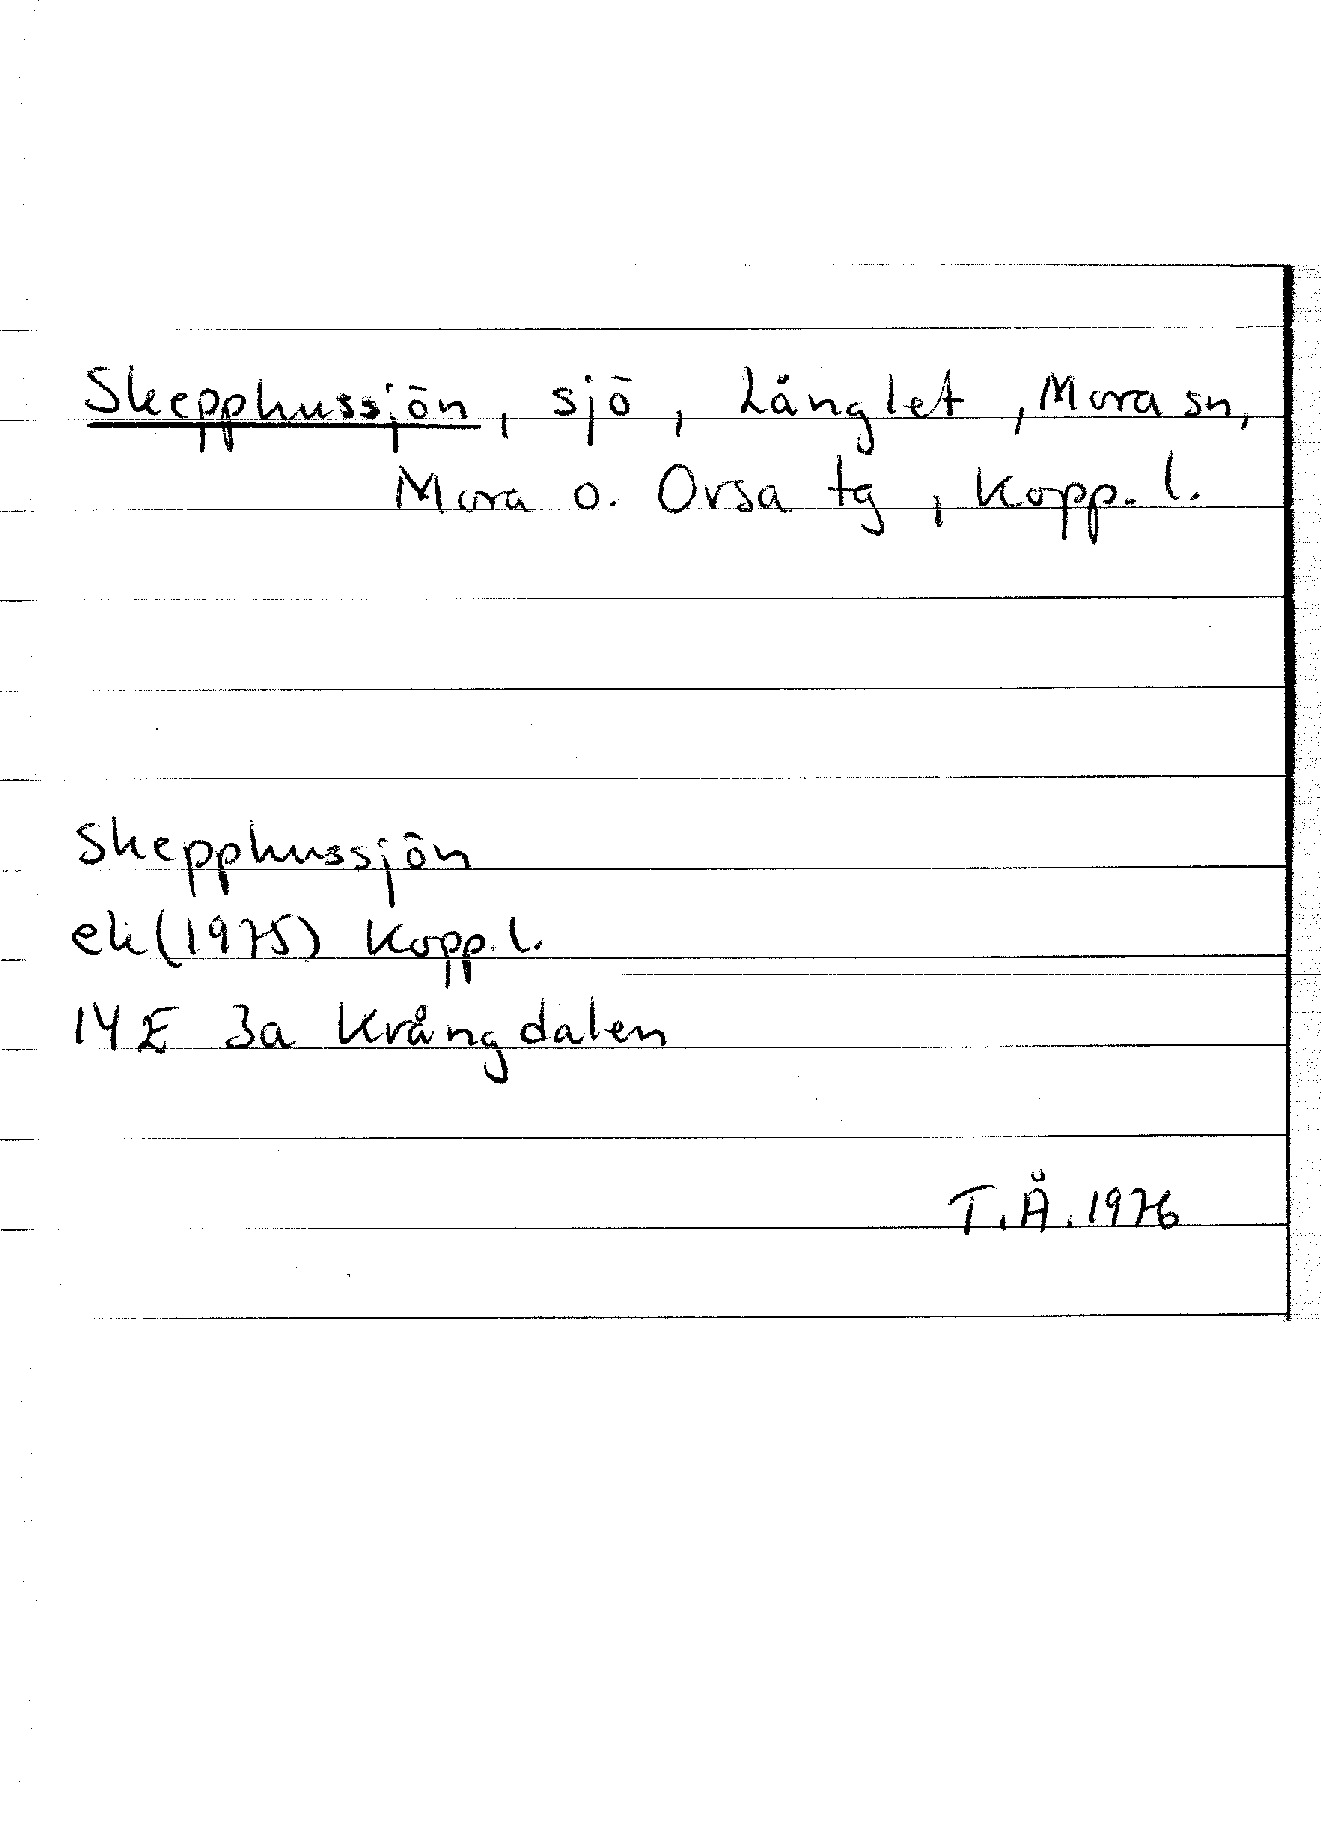 Skepphussjön, sjö, Långlet, Mora sn,
Mora o. Orsa tg, Kopp. l.
Skepphussjön
ek (1975) Kopp. l.
14 E 3a Krångdalen
T. Å. 1976